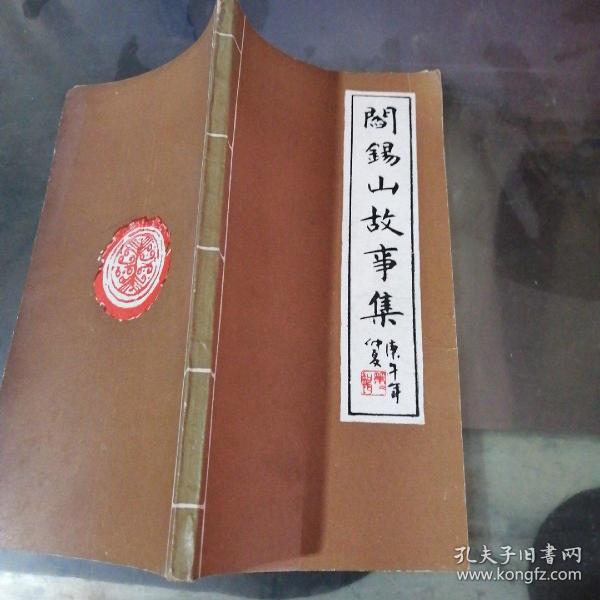 閻錫山故事集
庚午年
仲夏
孔夫子旧书网
www.kongfz.com